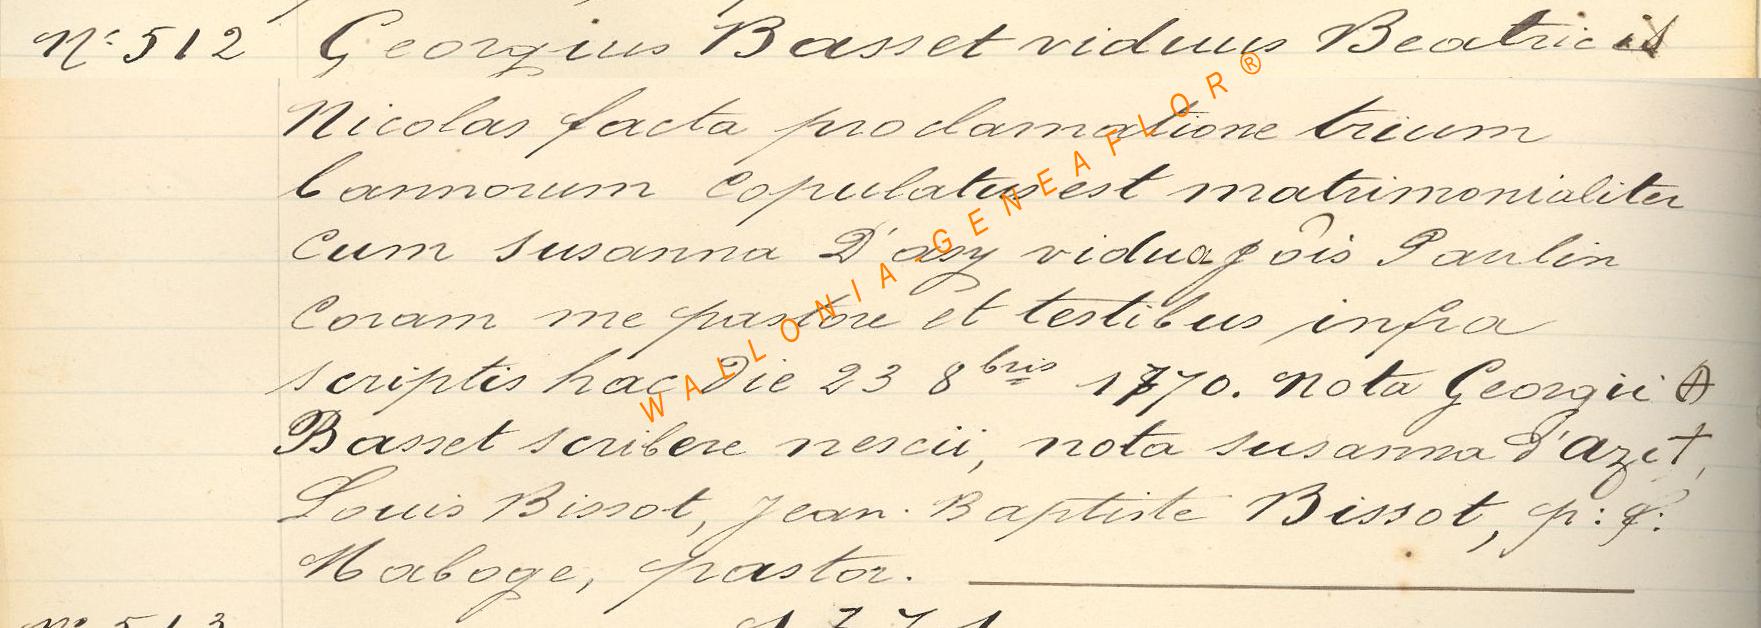 N° 512 Georgius Basset viduus Beatricis
Nicolas facta proclamatione trium
bannorum copulatus est matrimonialiter
cum susanna D'asy vidua jois Paulin
coram me pastore et testibus infra
scriptis hac Die 23 8bris 1770. nota Georgii
Basset scribere nescii, nota susanna d'azi +,
Louis Bissot, Jean-Baptiste Bissot, p: f:
Maboge, pastor.
N° 513 1771
WALLONIA-GENEAFLOR®